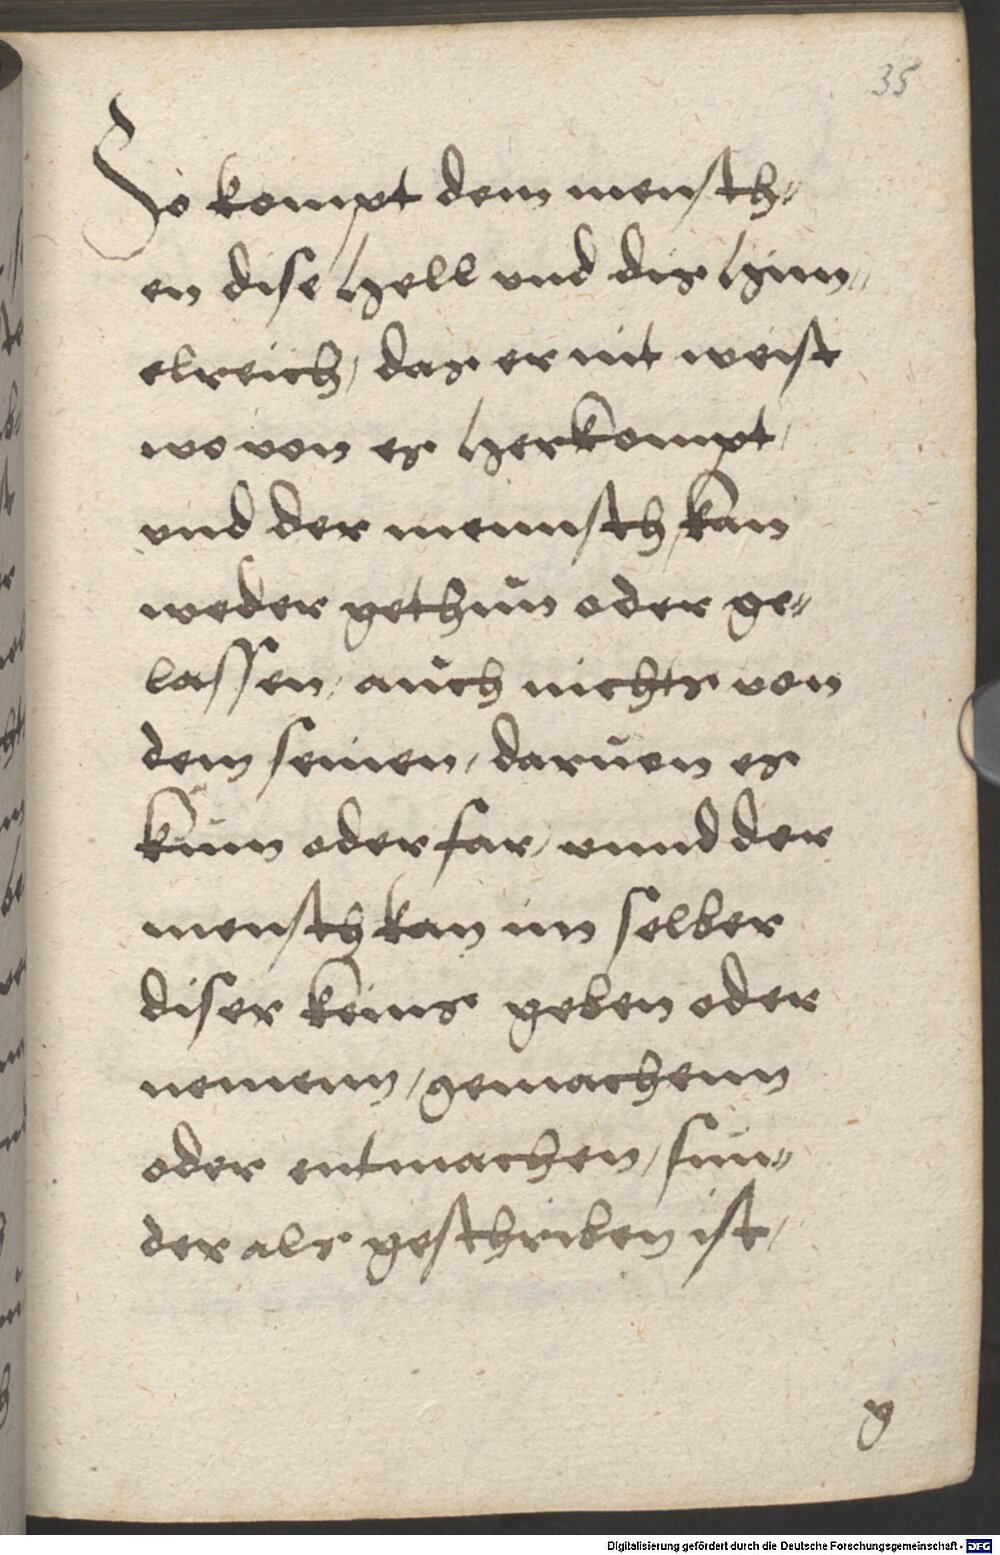 35
So kompt dem mensch⸗
en dise hell vnd dis him⸗
elreich, das er nit weist
wo von es herkompt,
vnd der mennsch, kan
weder gethůn oder ge⸗
lassen, aůch nichts von
dem seinen, darůon es
kům oder far, vnnd der
mensch kan im selber
diser keins geben oder
nemenn, gemachenn
oder entmachen, sůn⸗
der als geschriben ist,
g
Digitalisierung gefördert durch die Deutsche Forschungsgemeinschaft - DFG